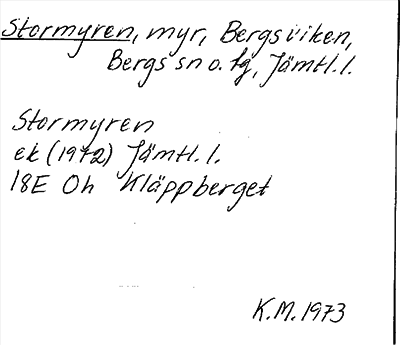 Stormyren, myr, Bergsviken,
Bergs sn o. tg, Jämtl.l.
Stormyren
ek (1972) Jämtl. l.
18E 0h Kläppberget
K.M. 1973